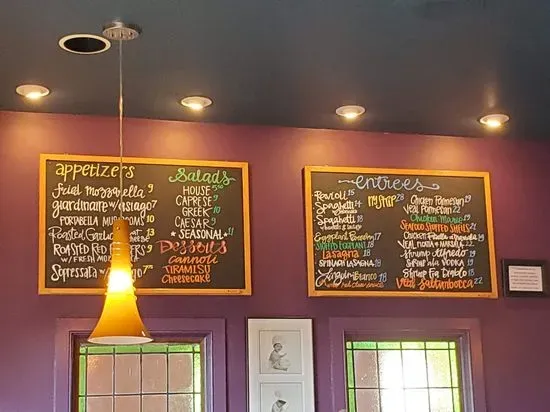 appetizers
Fried Mozzarella 9
giardiniare w/Asiago 7
Portabella Mushrooms 10
Roasted Garlic 13
Roasted Red Peppers 9
w/ Fresh Mozz
Sopressata
Salads
House 5.50
Caprese 9
Greek 10
Caesar 9
Seasonal 11
Desserts
Cannoli
Tiramisu
Cheesecake
entrees
Ravioli 15
Spaghetti 14
Spaghetti 18
Eggplant
Stuffed Eggplant
Lasagna 18
Spinach Lasagna
Linguini Bianco
NY Strip 28
Chicken Parmesan
Veal Parmesan 22
Chicken Marie 19
Seafood Stuffed Shells 21
Chicken
Veal Marsala 22
Shrimp Alfredo 19
Shrimp ala Vodka 19
Shrimp Fra Diablo 18
Veal Saltimbocca 22